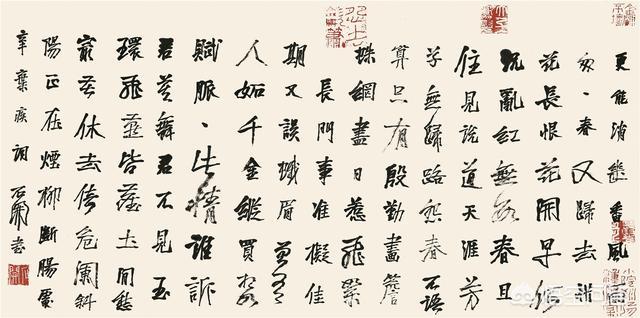 更能消幾番風
匆、春又歸去惜
花長恨花開早何
況亂紅無數春且
住見說道天涯芳
草無歸路怨春不語
算只有殷勤畫簷
蛛網盡日惹飛絮
長門事準擬佳
期又誤蛾眉曾有
人妬千金縱買相如
賦脈、此情誰訴
君莫舞君不見玉
環飛燕皆塵土閒愁
最苦休去倚危闌斜
陽正在煙柳斷腸處
辛棄疾詞 石蘭書